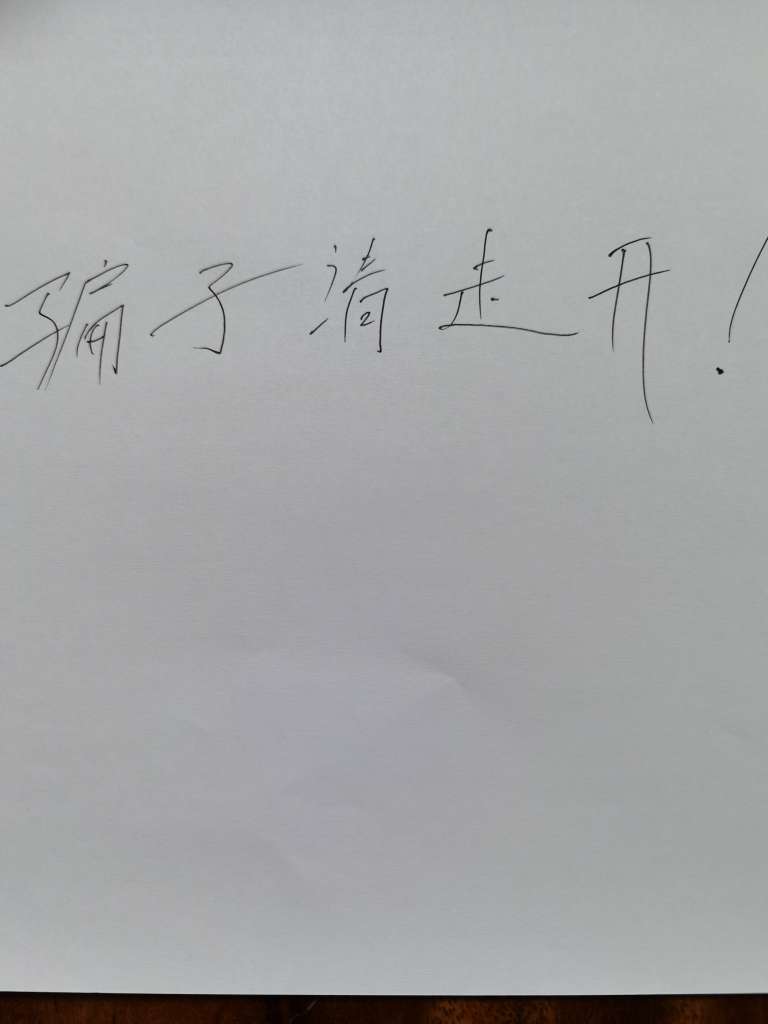 骗子请走开！